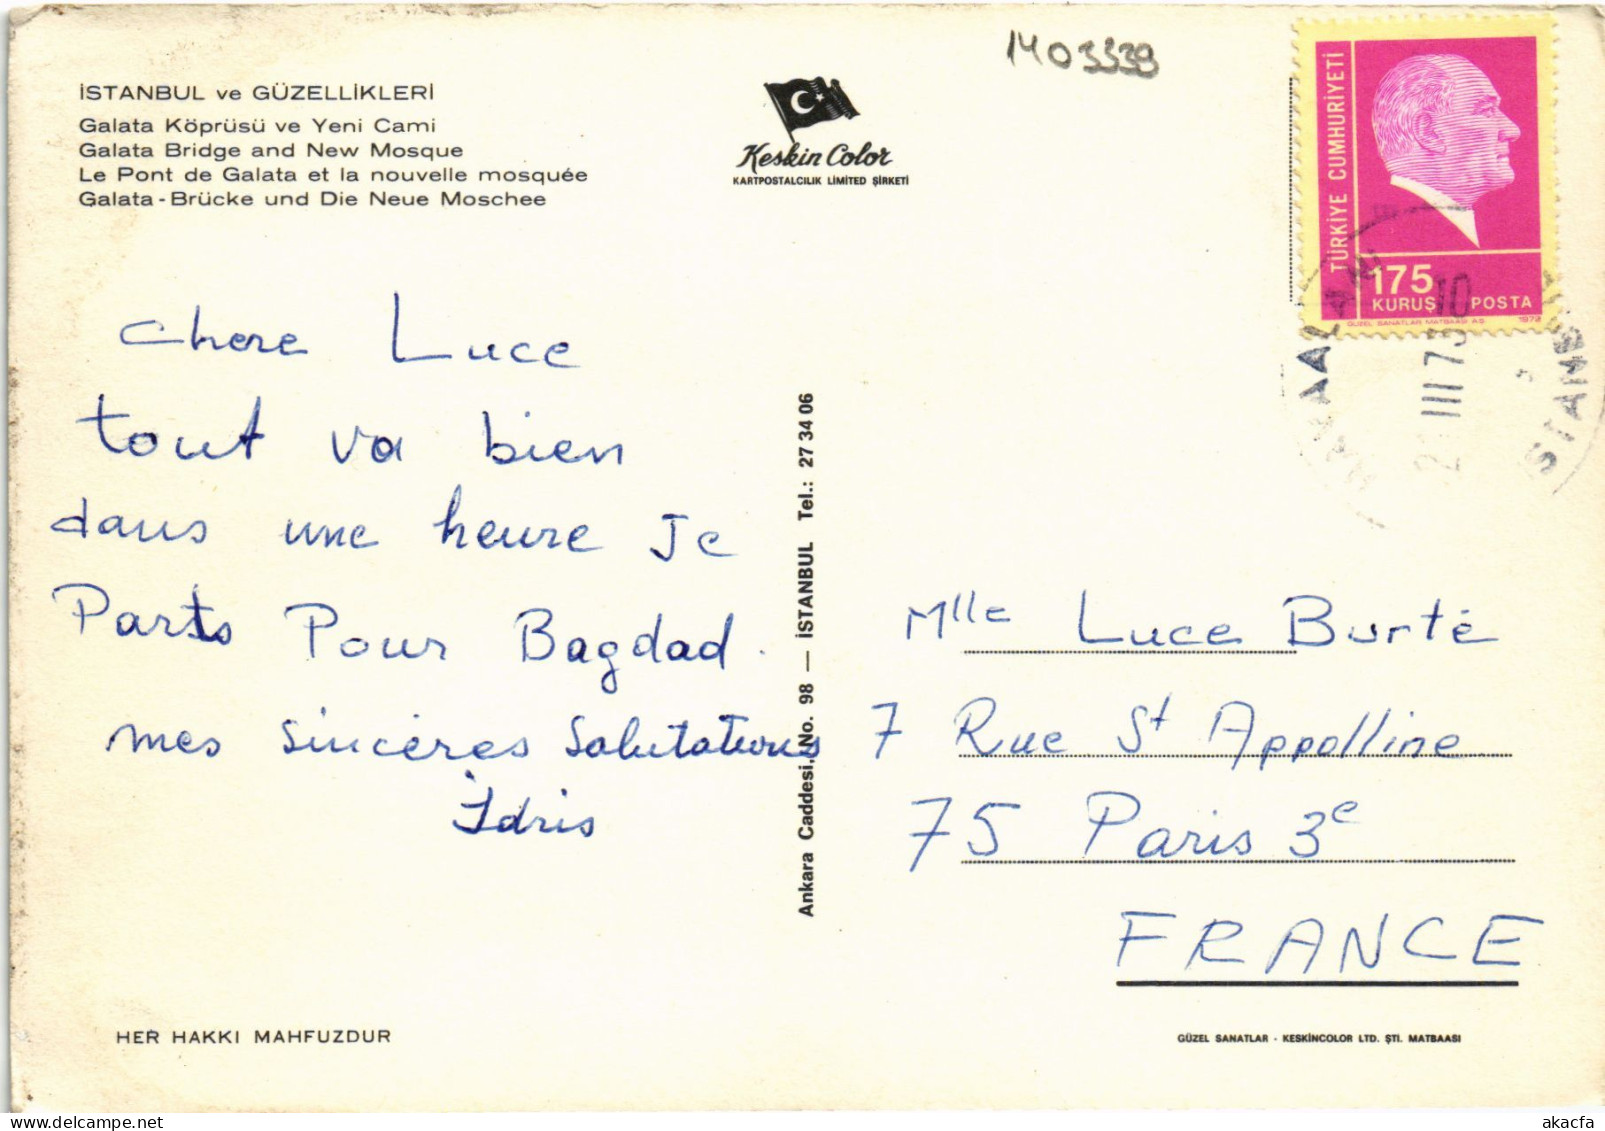 İSTANBUL ve GÜZELLİKLERİ
Galata Köprüsü ve Yeni Cami
Galata Bridge and New Mosque
Le Pont de Galata et la nouvelle mosquée
Galata-Brücke und Die Neue Moschee
Keskin Color
KARTPOSTALCILIK LİMİTED ŞİRKETİ
1403339
TÜRKİYE CUMHURİYETİ
175
KURUŞ POSTA
GÜZEL SANATLAR MATBAASI A.Ş. 1972
Chere Luce
tout va bien
dans une heure Je
Parts Pour Bagdad.
mes sincères Salutations
Idris
Ankara Caddesi, No. 98 — İSTANBUL Tel.: 27 34 06
Mlle Luce Burté
7 Rue St Appolline
75 Paris 3e
FRANCE
HER HAKKI MAHFUZDUR
GÜZEL SANATLAR - KESKİNCOLOR LTD. ŞTİ. MATBAASI
akacfa.delcampe.net
akacfa